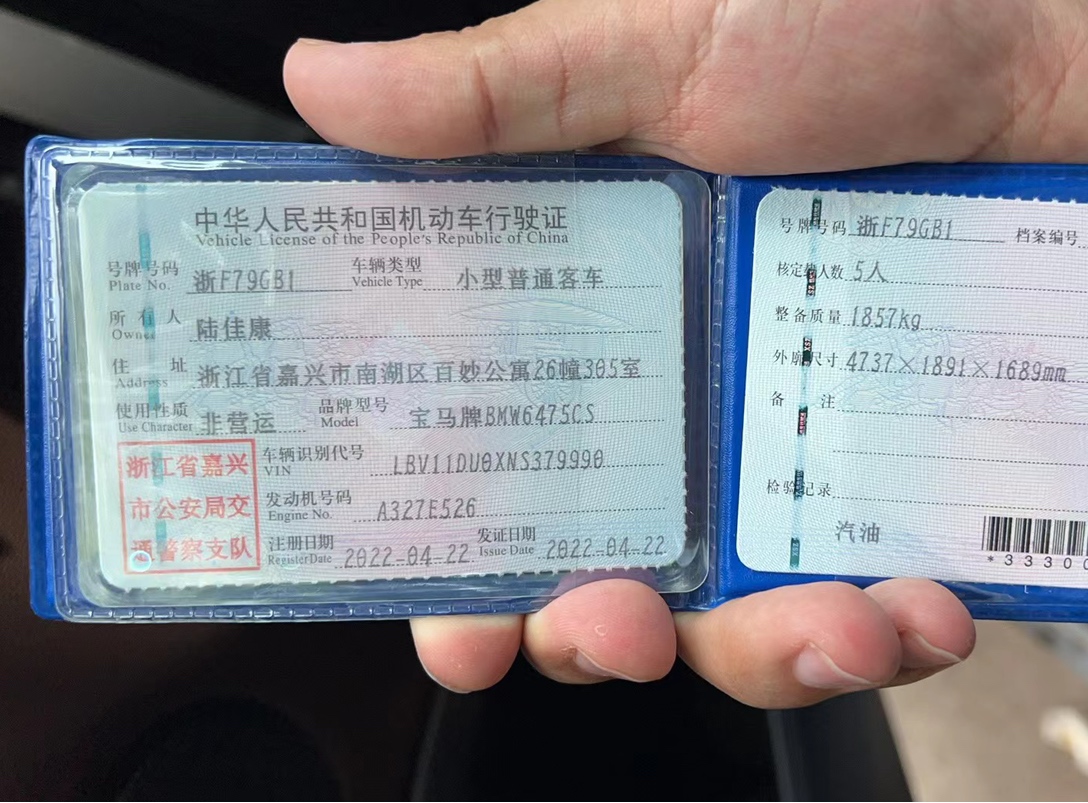 中华人民共和国机动车行驶证
Vehicle License of the People's Republic of China
号牌号码 浙F79GB1 车辆类型 小型普通客车
Plate No. Vehicle Type
所有人 陆佳康
Owner
住址 浙江省嘉兴市南湖区百妙公寓26幢305室
Address
使用性质 非营运 品牌型号 宝马牌BMW6475CS
Use Character Model
浙江省嘉兴
市公安局交
通警察支队
车辆识别代号 LBV11DU0XNS379990
VIN
发动机号码 A327E526
Engine No.
注册日期 2022-04-22 发证日期 2022-04-22
Register Date Issue Date
号牌号码 浙F79GB1 档案编号
核定载人数 5人
整备质量 1857kg
外廓尺寸 4737×1891×1689mm
备注
检验记录
汽油
*3330